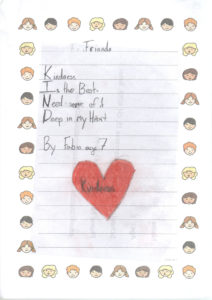 Friends
Kindness
Is the Best
Need some of it
Deep in my Heart
By Fabia age 7
Kindness